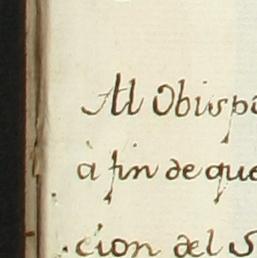 Al Obisp
à fin de que
cion del S